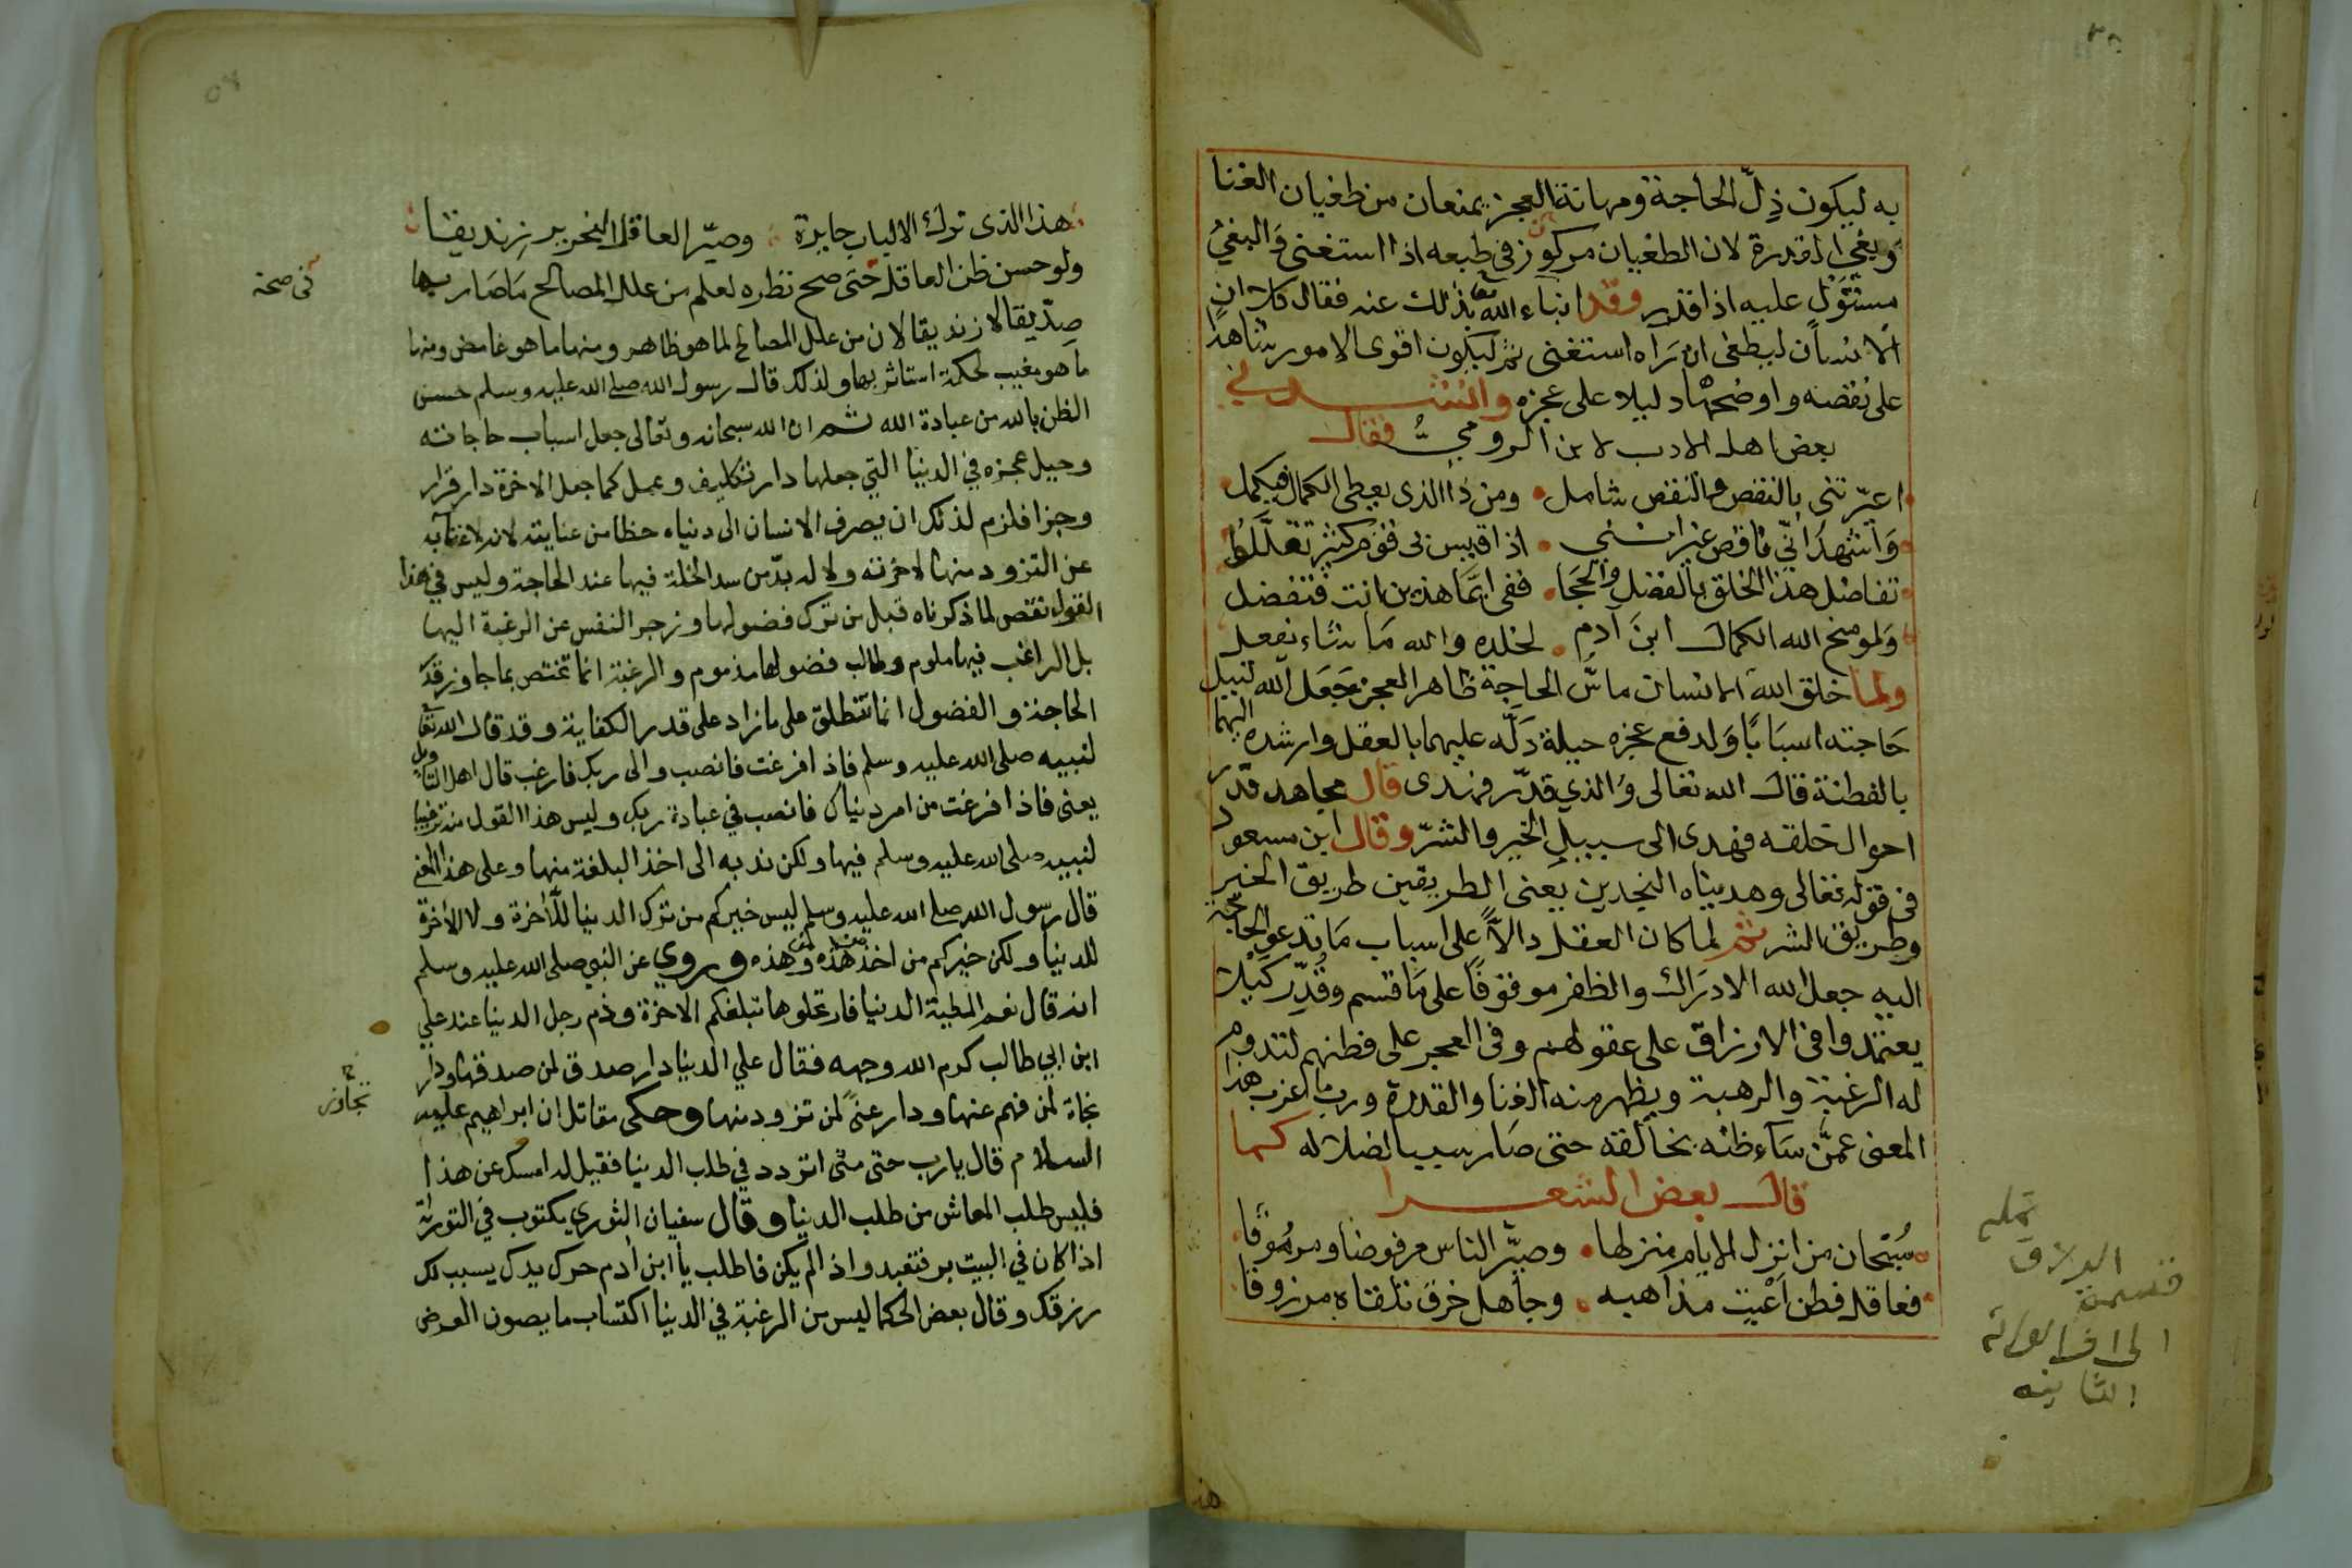 به ليكون ذلّ الحاجة ومهانة العجز يمنعان من طغيان الغنا
وبغي القدرة لان الطغيان مركوز في طبعه اذا استغنى والبغيُ
مستَوْلٍ عليه اذا قدر وقد انباء الله تعا بذلك عنه فقال كلا ان
الانسان ليطغى ان رَاه استغنى ثم ليكون اقوى الامور شاهدًا
على نُقصه واوضحها دليلا على عجزه وانشدني
بعض اهل الادب لابن الروميُّ فقال
اعيّرتني بالنقص والنقص شامل ومن ذا الذي يعطى الكمال فيكمل
وَاشهدُ انّي ناقص غير انني اذا قيس بي قوم كثير تقلّلوُا
تفاضل هذا الخلق بالفضل والحجَا ففي ايّما هذين انت فتفضل
وَلو منح الله الكمال ابنَ آدم لخلده والله مَا شاء يفعل
ولما خلق الله الانسان ماسَّ الحاجة ظاهر العجز جَعَل الله لنيل
حَاجته اسبَابًا وَلدفع عجزه حيلة دَلّه عليهما بالعقل وارشده اليهما
بالفطنة قال الله تعالى وَالذي قدّر فهدى قال مجاهد قدّر
احوال خلقه فهدى الى سبيل الخير والشرّ وقال ابن مسعود
في قوله تعالى وهديناه النجدين يعنى الطريقين طريق الخير
وطريق الشر ثم لما كان العقل دالاًّ على اسباب مَا تدعو الحاجة
اليه جعل الله الادرَاك والظفر موقوفًا على مَا قسم وقُدّر كَيْلا
يعتمدوا في الارزاق على عقولهم وفي العجز على فطنهم لتدوم
له الرغبة والرهبة ويظهر منه الغنا والقدرة وربما اعزب هذا
المعنى عمَّن سَآء ظنه بخالقه حتى صَار سببا لضلاله كما
قال بعض الشعرا
سُبحان من انزل الايام منزلها وصيّر الناس مرفوضا ومرمُوقًا
فعاقل فطن اَعْيت مذاهبه وجاهل خرق تلقاه مرزوقا
هذا الذي ترك الالباب حايرة وصيّر العاقل النحرير زنديقا
ولو حسن ظن العاقل حَتى صح نظره لعلم من علل المصالح مَا صَار بها
في صحة
صدّيقا لا زنديقا لان من علل المصالح لما هو ظاهر ومنها ما هو غامض ومنها
ما هو مغيب لحكمة استاثر بها ولذلك قال رسول الله صلى الله عليه وسلم حسن
الظن بالله من عبادة الله ثم ان الله سبحانه وتعالى جعل اسباب حاجاته
وحيل عجزه في الدنيا التي جعلها دار تكليف وعمل كما جعل الاخرة دار قرار
وجزا فلزم لذلك ان يصرف الانسان الى دنياه حظا من عنايته لانه لا غنآ به
عن التزود منها لاخرته ولا له بدّ من سد الخلة فيها عند الحاجة وليس في هذا
القول نقص لما ذكرناه قبل من ترك فضولها وزجر النفس عن الرغبة اليها
بل الراغب فيها ملوم وطالب فضولها مذموم والرغبة انما تختص بما جاوز قدر
الحاجة والفضول انما تنطلق على ما زاد على قدر الكفاية وقد قال الله تعا
لنبيه صلى الله عليه وسلم فاذا فرغت فانصب والى ربك فارغب قال اهل التاويل
يعنى فاذا فرغت من امر دنياك فانصب في عبادة ربك وليس هذا القول منه ترغيبا
لنبيه صلى الله عليه وسلم فيها ولكن ندبه الى اخذ البلغة منها وعلى هذا المعنى
قال رسول الله صلى الله عليه وسلم ليس خيركم من ترك الدنيا للأخرة ولا الأخرة
للدنيا ولكن خيركم من اخذ من هذه وهذه وروي عن النبي صلى الله عليه وسلم
انه قال نعم المطية الدنيا فارتحلوها تبلغكم الاخرة وذم رجل الدنيا عند علي
ابن ابي طالب كرم الله وجهه فقال علي الدنيا دار صدق لمن صدقها ودار
نجاة لمن فهم عنها ودار عنىً لمن تزود منها وحكى مقاتل ان ابراهيم عليه
السلام قال يا رب حتى متى اتردد في طلب الدنيا فقيل له امسك عن هذا
فليس طلب المعاش من طلب الدنيا وقال سفيان الثوري مكتوب في التوراة
اذا كان في البيت بر فتعبد واذا لم يكن فاطلب يا ابن أدم حرك يدك يسبب لك
رزقك وقال بعض الحكما ليس من الرغبة في الدنيا اكتساب ما يصون العرض